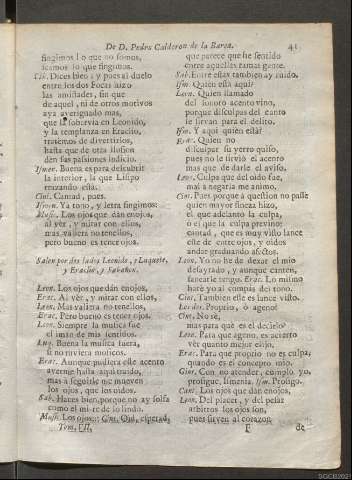 De D. Pedro Calderon de la Barca. 41
fingimos lo que no somos,
seamos lo que fingimos.
Cin. Dices bien; y pues al duelo
entre los dos Focas hizo
las amistades, sin que
de aquel, ni de otros motivos
aya averiguado mas,
que la sobervia en Leonido,
y la templanza en Eraclio,
tratèmos de divertirlos,
hasta que de otra ilusion
dèn sus passiones indicio.
Ismen. Buena es para descubrir
la interior, la que Lisipo
trazando està.
Cint. Cantad, pues.
Ismen. Ya tono, y letra fingimos:
Music. Los ojos que dàn enojos,
al vèr, y mirar con ellos,
mas valiera no tenellos,
pero bueno es tener ojos.
Salen por dos lados Leonido, y Luquete,
y Eraclio, y Sabañon.
Leon. Los ojos que dàn enojos,
Erac. Al vèr, y mirar con ellos,
Leon. Mas valiera no tenellos,
Erac. Pero bueno es tener ojos.
Leon. Siempre la musica fue
el imàn de mis sentidos.
Luq. Buena la musica fuera,
si no huviera musicos.
Erac. Aunque pudiera esse acento
averme hasta aqui traido,
mas à seguirle me mueven
los ojos, que los oidos.
Sab. Haces bien, porque no ay solfa
como el mi-re de lo lindo.
Music. Los ojos::- Cint. Oid, esperad,
Tom. VII.
que parece que he sentido
entre aquellas ramas gente.
Sab. Entre estas tambien ay ruido.
Ism. Quien està aqui?
Leon. Quien llamado
del sonoro acento vino,
porque disculpas del canto
le sirvan para el delito.
Ism. Y aqui quien està?
Erac. Quien no
disculpar su yerro quiso,
pues no le sirviò el acento
mas que de darle el aviso.
Leon. Culpa que del oido fue,
mal à negaria me animo.
Cint. Pues porque à question no passe
quien mayor fineza hizo,
el que adelanta la culpa,
ò el que la culpa previno:
cantad, que es muy visto lance
este de entre ojos, y oidos
andar graduando afectos.
Leon. Yo no he de dexar el mio
desayrado, y aunque canten,
sanearle tengo. Erac. Lo mismo
harè yo al compàs del tono.
Cint. Tambien esse es lance visto.
Los dos. Proprio, ò ageno?
Cint. No sè,
mas para què es el decirlo?
Leon. Para que ageno, es acierto
vèr quanto mejor elijo.
Erac. Para que proprio no es culpa,
quando es el concepto mio.
Cint. Con no atender, cumplo yo,
prosigue, Ismenia. Ism. Prosigo.
Cant. Los ojos que dàn enojos,
Leon. Del placer, y del pesar
arbitros los ojos son,
pues sirven al corazon
F de